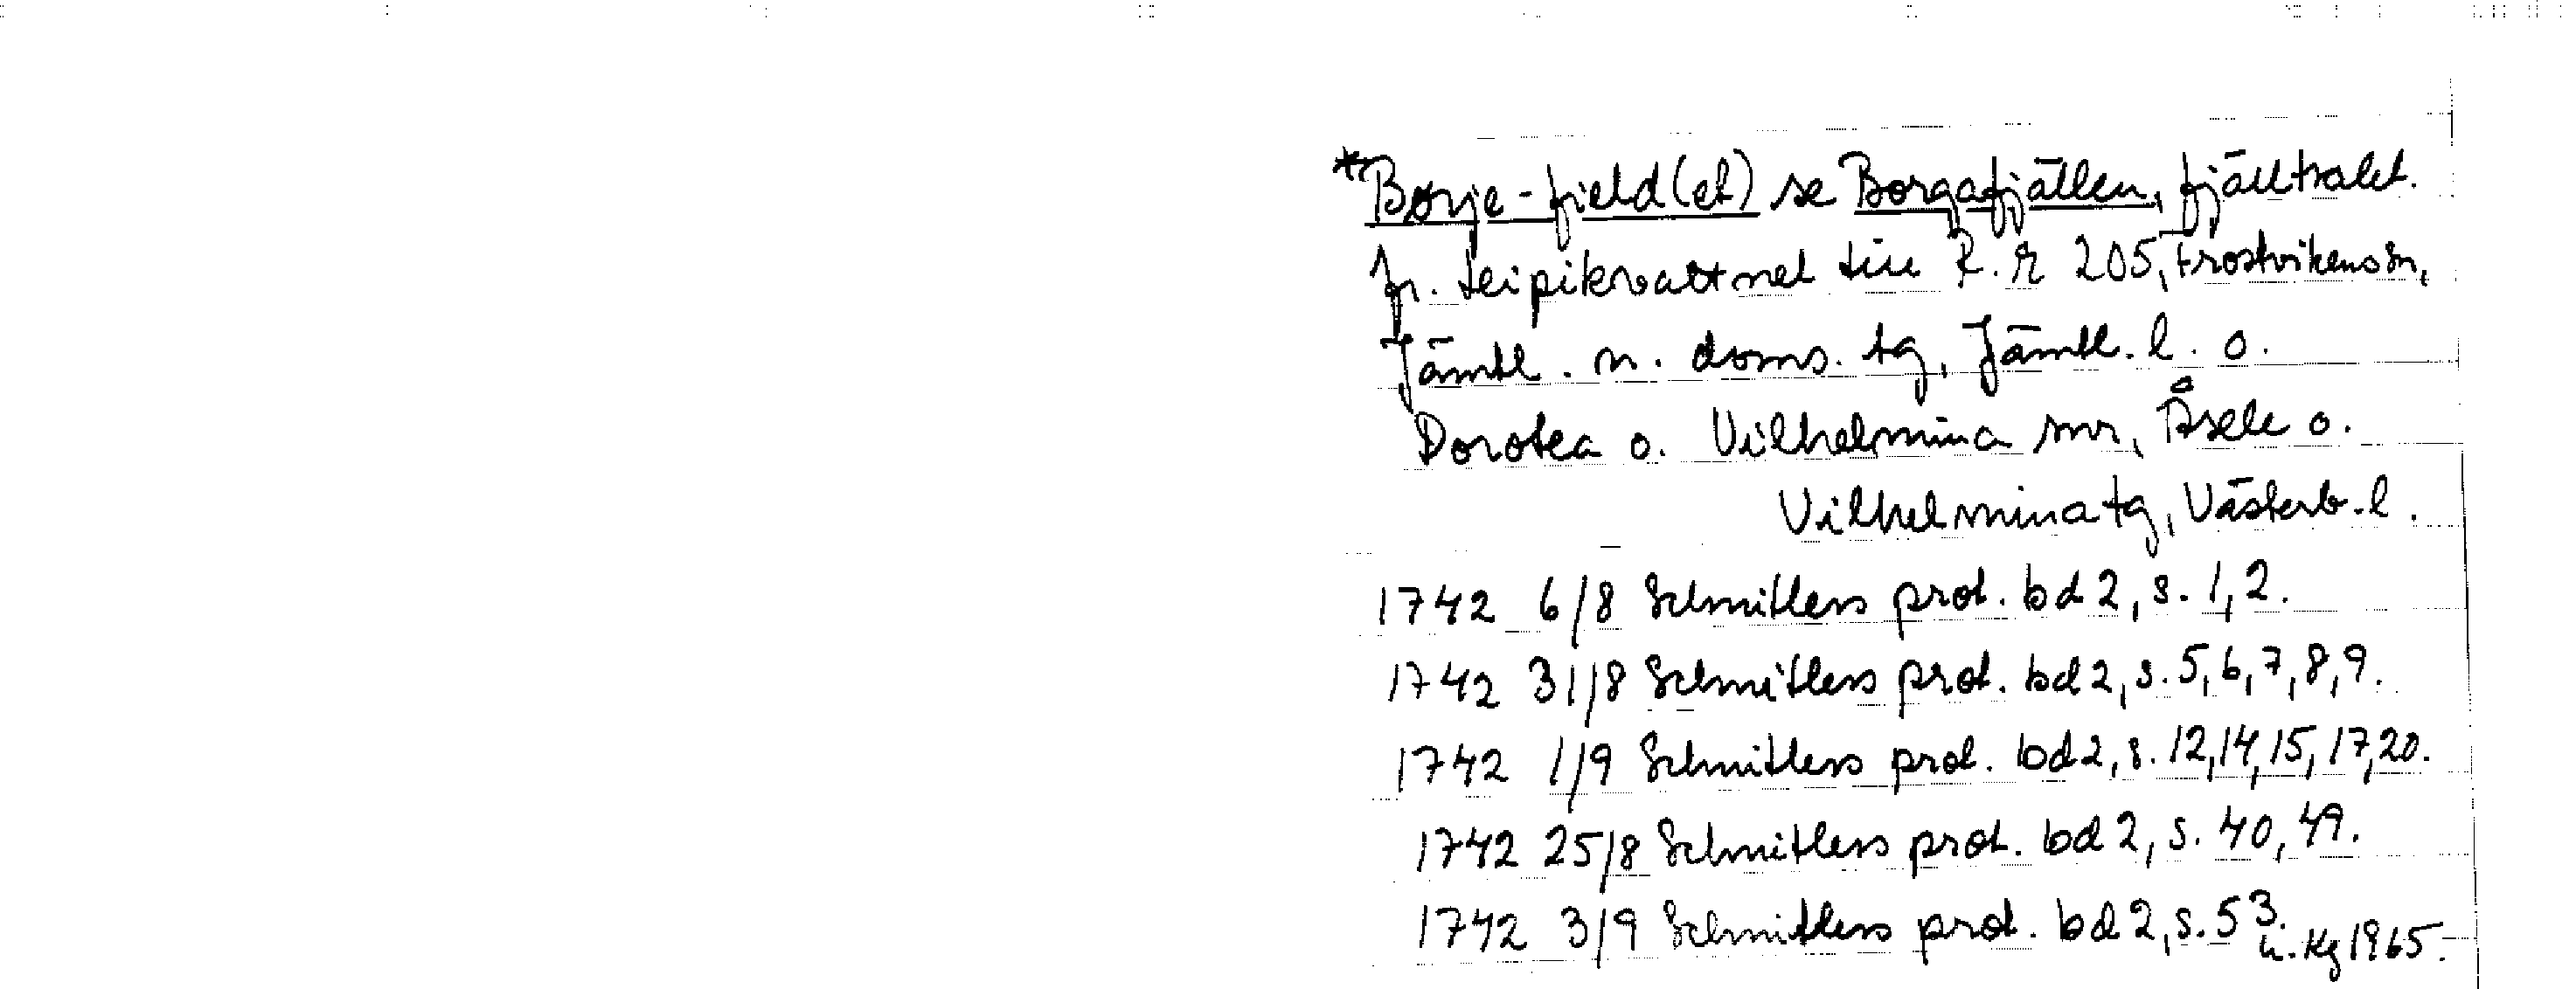 *Børje-field(et) se Borgafjällen, fjälltrakt.
fr. Leipikvattnet till R.r 205, Frostvikens sn,
Jämtl. n. doms. tg, Jämtl. l. o.
Dorotea o. Vilhelmina snr, Åsele o.
Vilhelmina tg, Västerb. l.
1742 6/8 Schnitlers prot. bd 2, s. 1, 2.
1742 31/8 Schnitlers prot. bd 2, s. 5, 6, 7, 8, 9.
1742 1/9 Schnitlers prot. bd 2, s. 12, 14, 15, 17, 20.
1742 25/8 Schnitlers prot. bd 2, s. 40, 49.
1742 3/9 Schnitlers prot. bd 2, s. 53.
1965.